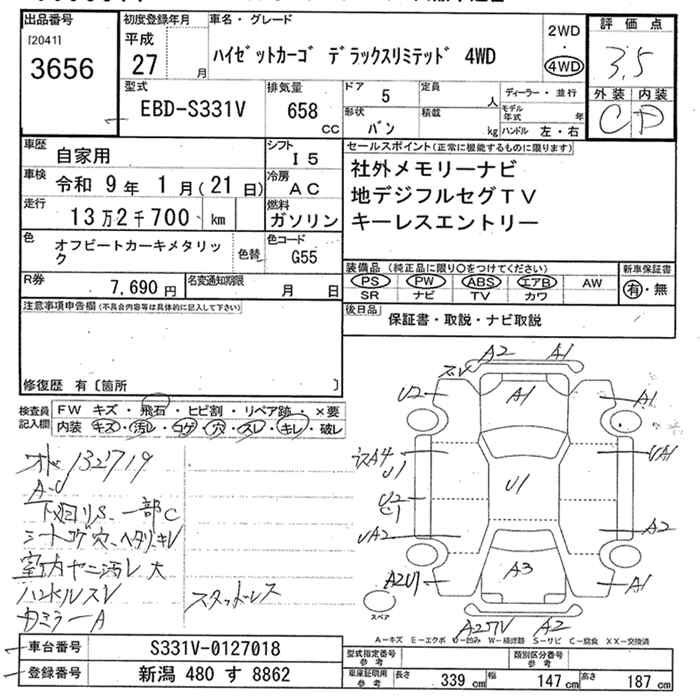 出品番号
[2041]
3656
初度登録年月
平成
27 月
車名・グレード
ハイゼットカーゴ デラックスリミテッド 4WD
2WD
・
4WD
評価点
3.5
外装 内装
C D
型式
EBD-S331V
排気量
658 cc
ドア 5
形状 バン
定員 人
積載 kg
ディーラー・並行
モデル年式 年
ハンドル 左・右
車歴
自家用
シフト
I5
車検
令和 9年 1月(21日)
冷房
AC
走行
13万2千700 km
燃料
ガソリン
色
オフビートカーキメタリック
色替
色コード
G55
R券
7,690円
名変通知期限
月 日
セールスポイント(正常に機能するものに限ります)
社外メモリーナビ
地デジフルセグTV
キーレスエントリー
装備品(純正品に限り〇をつけてください)
PS PW ABS エアB AW
SR ナビ TV カワ
新車保証書
有・無
後日品
保証書・取説・ナビ取説
注意事項申告欄(不具合内容等は具体的に記入して下さい)
修復歴 有〔箇所 〕
検査員記入欄
FW キズ・飛石・ヒビ割・リペア跡・×要
内装 キズ・汚レ・コゲ・穴・スレ・キレ・破レ
132719
A-U
下回りS、一部C
シートコゲ穴、ヘタリ、キレ
室内ヤニ汚レ大
ハンドルスレ
カミラーA
スタッドレス
A2 A1
スレ
U2 A1 A1
A4 UA1
U1
U1
U2
C1
UA2 A2
A2U1 A3 A1
A2
スペア
A-キズ E-エクボ U-凹み W-補修跡 S-サビ C-腐食 XX-交換済
車台番号
S331V-0127018
登録番号
新潟 480 す 8862
型式指定番号
参考
類別区分番号
参考
車庫証明用
参考
長さ 339 cm
幅 147 cm
高さ 187 cm